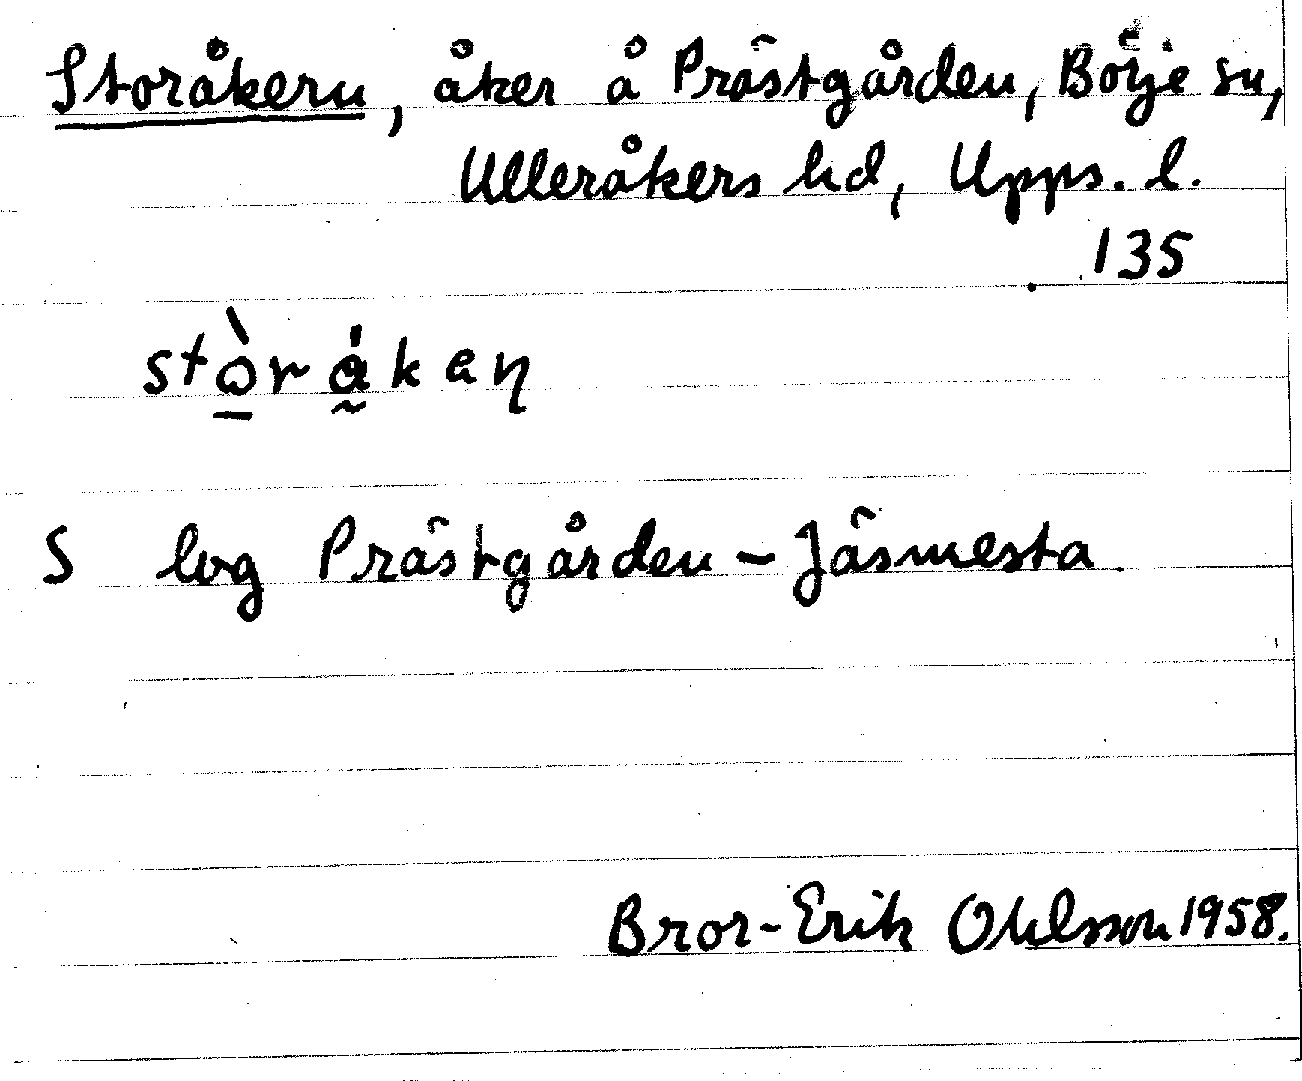 Storåkern, åker å Prästgården, Börje sn,
Ulleråkers hd, Upps. l.
135
stò̱rå̰kaη
S log Prästgården – Jäsmesta
Bror-Erik Ohlsson 1958.